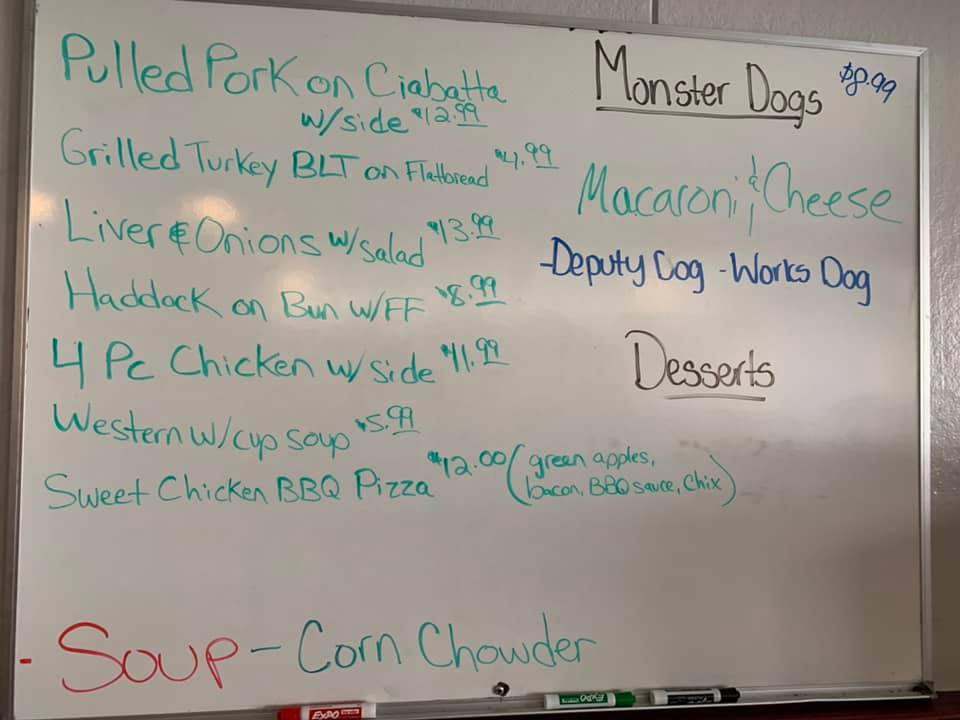 Pulled Pork on Ciabatta
w/side $12.99
Grilled Turkey BLT on Flatbread $4.99
Liver & Onions w/salad $13.99
Haddock on Bun w/FF $8.99
4 Pc Chicken w/ side $11.99
Western w/cup soup $5.99
Sweet Chicken BBQ Pizza $12.00 (green apples,
bacon, BBQ sauce, Chix)
Monster Dogs $8.99
Macaroni & Cheese
-Deputy Dog - Works Dog
Desserts
- Soup - Corn Chowder
EXPO
EXPO